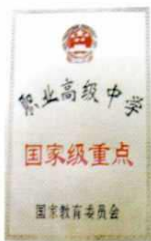 职业高级中学
国家级重点
国家教育委员会